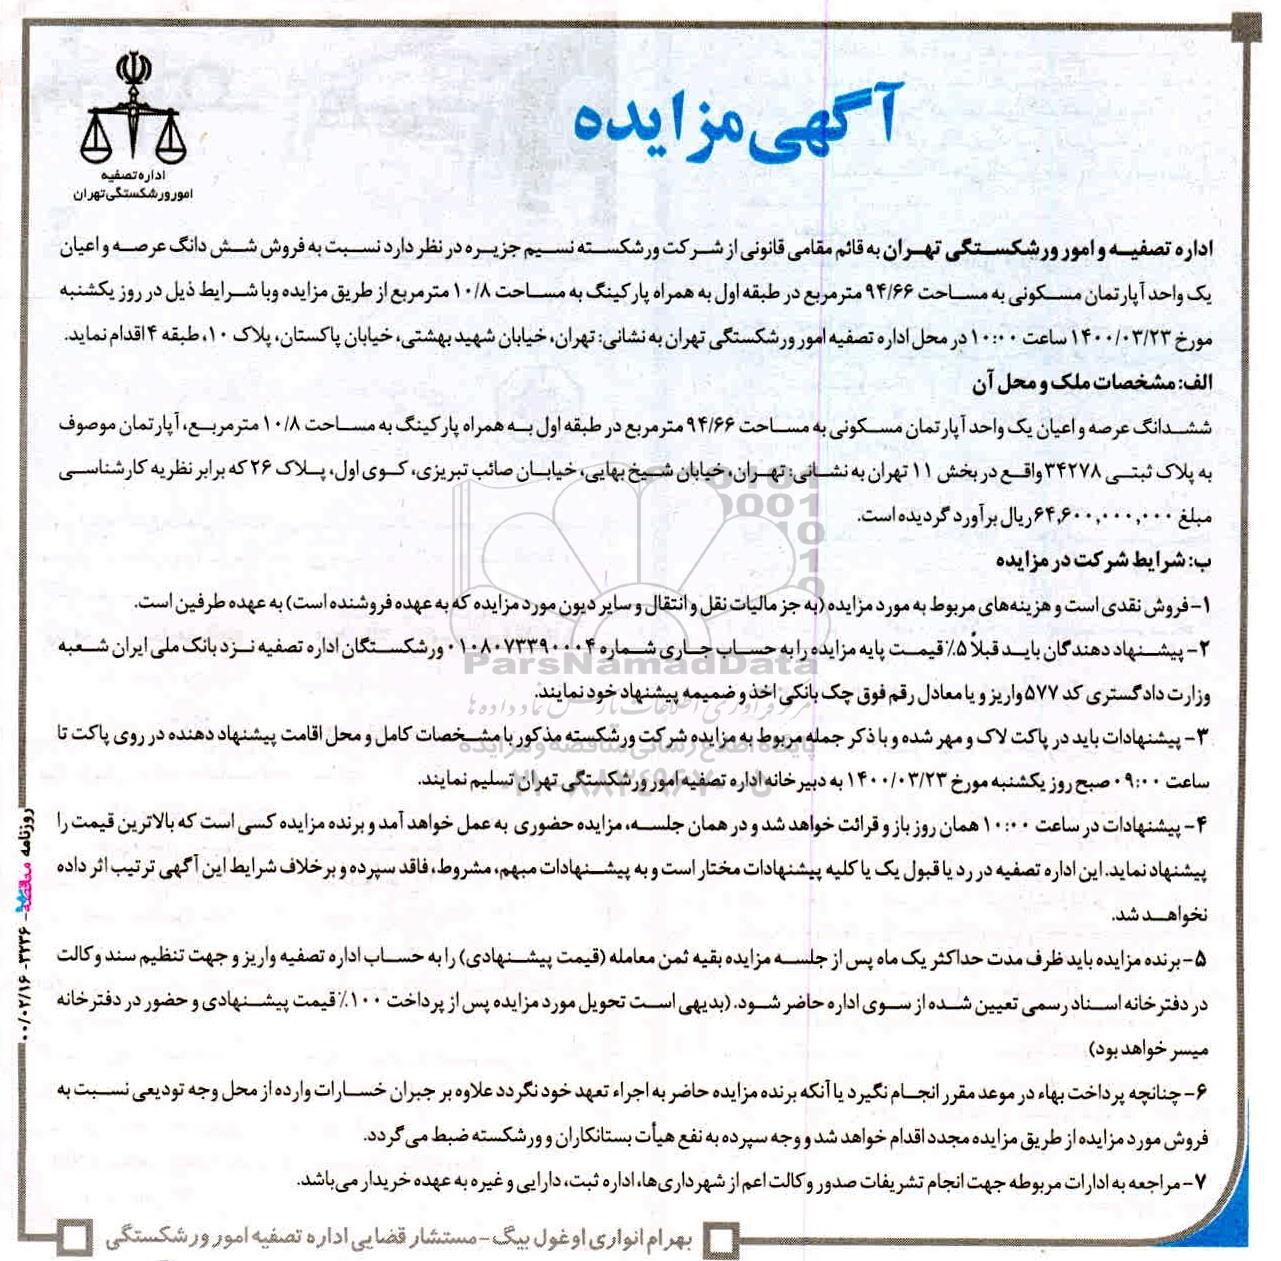 آگهی مزایده
اداره تصفیه
امور ورشکستگی تهران
اداره تصفیه و امور ورشکستگی تهران به قائم مقامی قانونی از شرکت ورشکسته نسیم جزیره در نظر دارد نسبت به فروش شش دانگ عرصه و اعیان
یک واحد آپارتمان مسکونی به مساحت ۹۴/۶۶ مترمربع در طبقه اول به همراه پارکینگ به مساحت ۱۰/۸ مترمربع از طریق مزایده وبا شرایط ذیل در روز یکشنبه
مورخ ۱۴۰۰/۰۳/۲۳ ساعت ۱۰:۰۰ در محل اداره تصفیه امور ورشکستگی تهران به نشانی: تهران، خیابان شهید بهشتی، خیابان پاکستان، پلاک ۱۰، طبقه ۴ اقدام نماید.
الف: مشخصات ملک و محل آن
ششدانگ عرصه و اعیان یک واحد آپارتمان مسکونی به مساحت ۹۴/۶۶ مترمربع در طبقه اول به همراه پارکینگ به مساحت ۱۰/۸ مترمربع، آپارتمان موصوف
به پلاک ثبتی ۳۴۲۷۸ واقع در بخش ۱۱ تهران به نشانی: تهران، خیابان شیخ بهایی، خیابان صائب تبریزی، کوی اول، پلاک ۲۶ که برابر نظریه کارشناسی
مبلغ ۶۴,۶۰۰,۰۰۰,۰۰۰ ریال برآورد گردیده است.
ب: شرایط شرکت در مزایده
۱- فروش نقدی است و هزینه‌های مربوط به مورد مزایده (به جز مالیات نقل و انتقال و سایر دیون مورد مزایده که به عهده فروشنده است) به عهده طرفین است.
۲- پیشنهاد دهندگان باید قبلاً ۵٪ قیمت پایه مزایده را به حساب جاری شماره ۰۱۰۸۰۷۳۳۹۰۰۰۴ ورشکستگان اداره تصفیه نزد بانک ملی ایران شعبه
وزارت دادگستری کد ۵۷۷ واریز و یا معادل رقم فوق چک بانکی اخذ و ضمیمه پیشنهاد خود نمایند.
۳- پیشنهادات باید در پاکت لاک و مهر شده و با ذکر جمله مربوط به مزایده شرکت ورشکسته مذکور با مشخصات کامل و محل اقامت پیشنهاد دهنده در روی پاکت تا
ساعت ۰۹:۰۰ صبح روز یکشنبه مورخ ۱۴۰۰/۰۳/۲۳ به دبیرخانه اداره تصفیه امور ورشکستگی تهران تسلیم نمایند.
۴- پیشنهادات در ساعت ۱۰:۰۰ همان روز باز و قرائت خواهد شد و در همان جلسه، مزایده حضوری به عمل خواهد آمد و برنده مزایده کسی است که بالاترین قیمت را
پیشنهاد نماید. این اداره تصفیه در رد یا قبول یک یا کلیه پیشنهادات مختار است و به پیشنهادات مبهم، مشروط، فاقد سپرده و برخلاف شرایط این آگهی ترتیب اثر داده
نخواهد شد.
۵- برنده مزایده باید ظرف مدت حداکثر یک ماه پس از جلسه مزایده بقیه ثمن معامله (قیمت پیشنهادی) را به حساب اداره تصفیه واریز و جهت تنظیم سند وکالت
در دفترخانه اسناد رسمی تعیین شده از سوی اداره حاضر شود. (بدیهی است تحویل مورد مزایده پس از پرداخت ۱۰۰٪ قیمت پیشنهادی و حضور در دفترخانه
میسر خواهد بود)
۶- چنانچه پرداخت بهاء در موعد مقرر انجام نگیرد یا آنکه برنده مزایده حاضر به اجراء تعهد خود نگردد علاوه بر جبران خسارات وارده از محل وجه تودیعی نسبت به
فروش مورد مزایده از طریق مزایده مجدد اقدام خواهد شد و وجه سپرده به نفع هیأت بستانکاران و ورشکسته ضبط می‌گردد.
۷- مراجعه به ادارات مربوطه جهت انجام تشریفات صدور وکالت اعم از شهرداری‌ها، اداره ثبت، دارایی و غیره به عهده خریدار می‌باشد.
بهرام انواری اوغول بیگ - مستشار قضایی اداره تصفیه امور ورشکستگی
روزنامه مناقصه - ۳۳۳۶ - ۰۰/۰۲/۱۶
ParsNamadData
مرکز فرآوری اطلاعات پارس نماد داده ها
پایگاه اطلاع رسانی مناقصه و مزایده